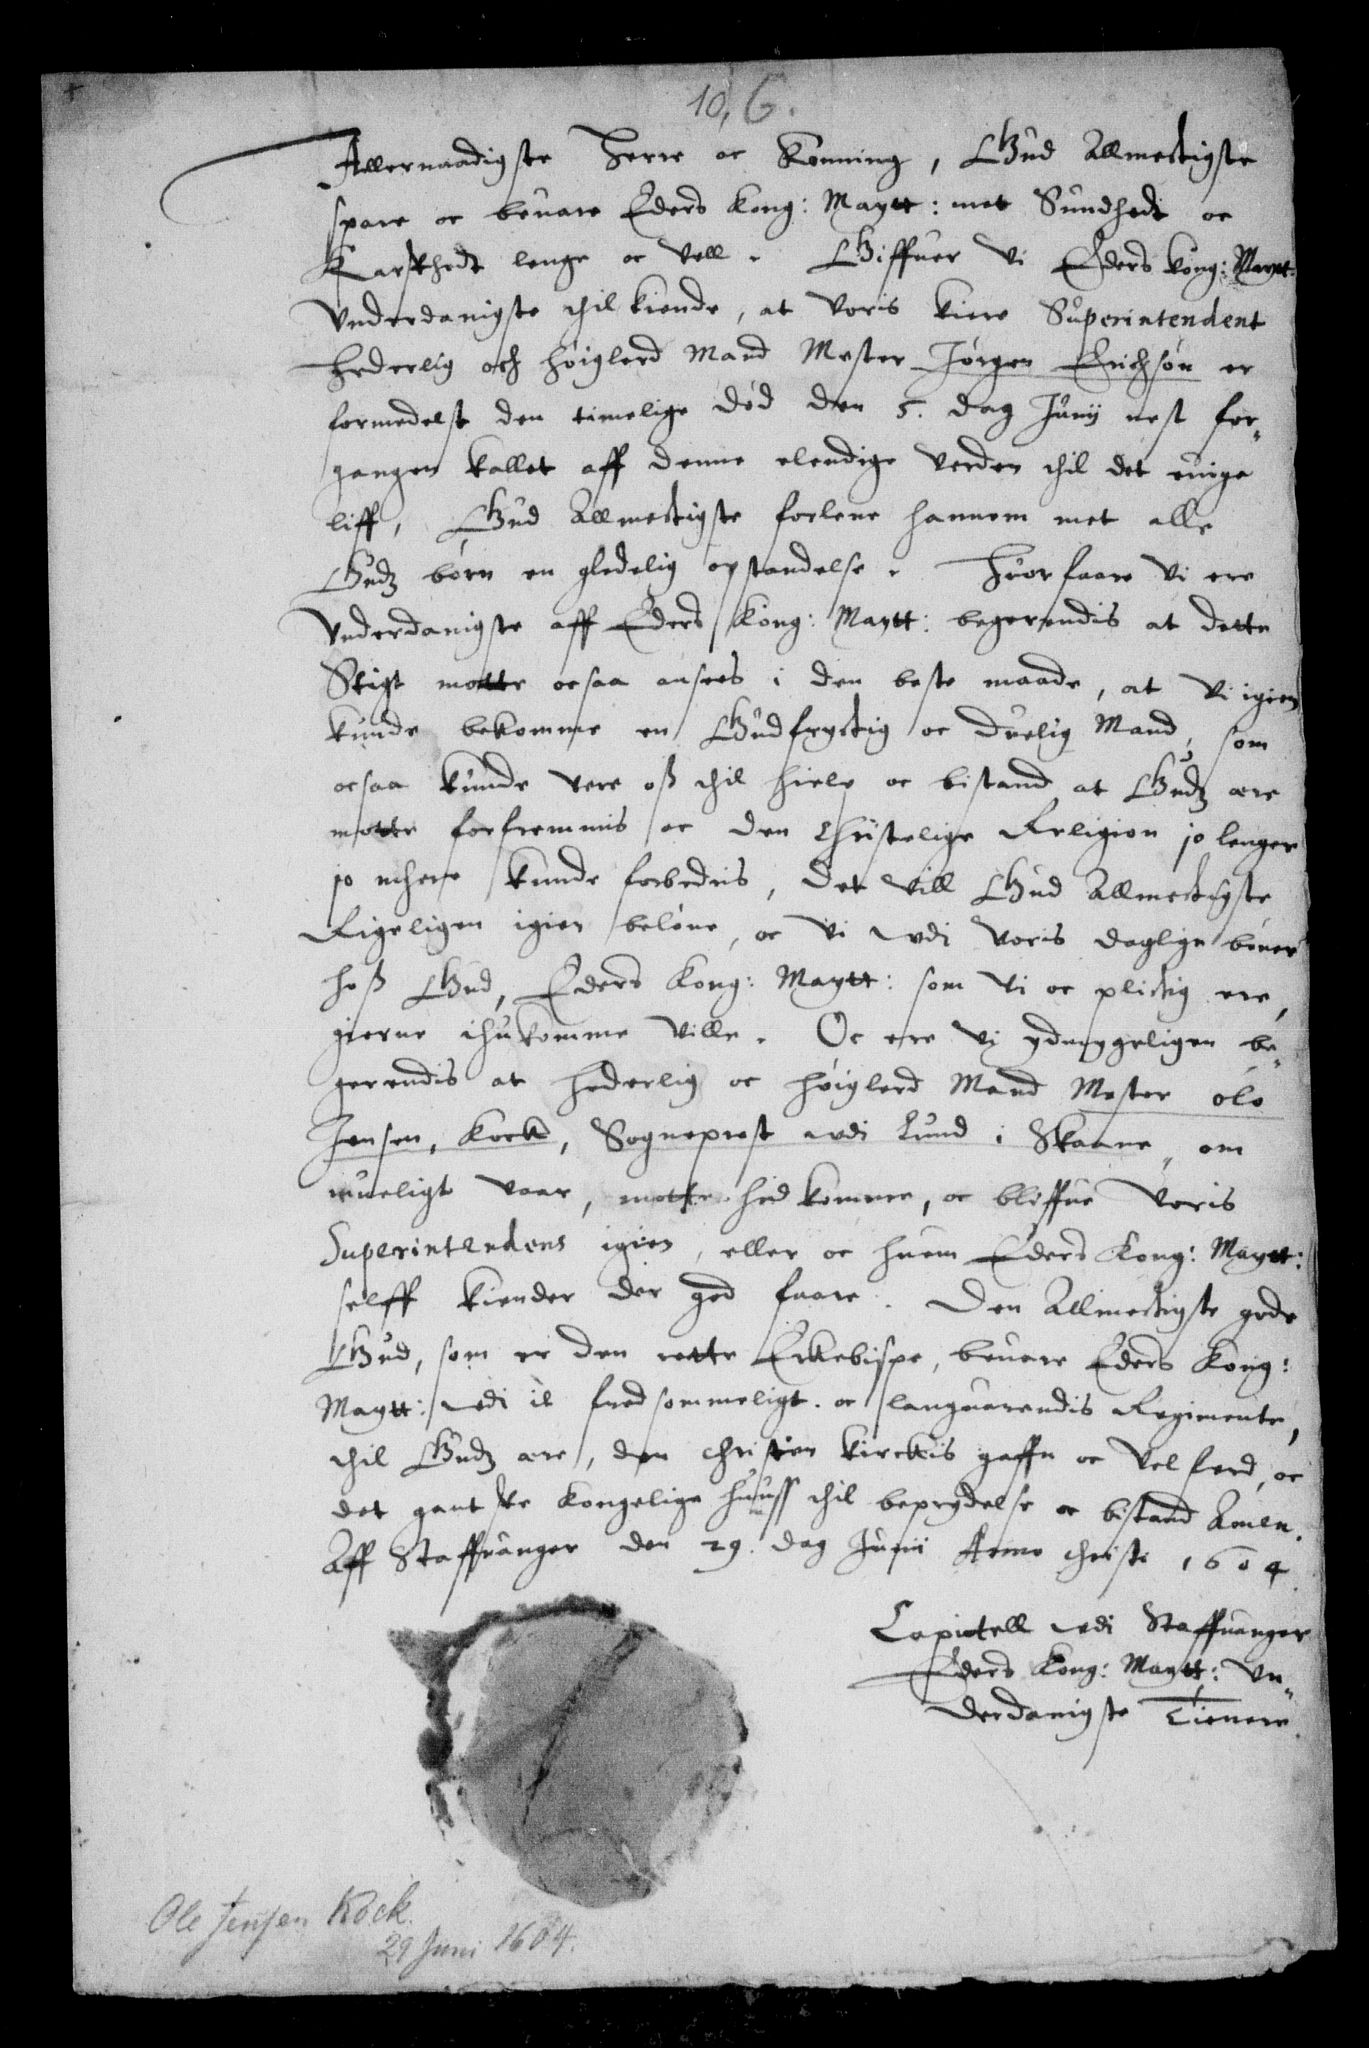 10, 6.
Allernaadigste Herre oc Konning, Gud Allmectigste
spare oc beuare Eders Kong: Maytt: met Sundhedt oc
Karskhedt lenge oc vell. Giffuer Vi Eders Kong: Maytt:
Vnderdanigste thil kiende, at Voris kiere Superintendent
Hederlig och høiglerd Mand Mester Jørgen Erichsøn er
formedelst den timelige død den 5. dag Junij nest for„
gangen kallet aff denne elendige Verden thil det euige
liff, Gud Allmectigste forlene hannem met alle
Gudz børn en gledelig opstandelse. Huorfaare Vi ere
Vnderdanigste aff Eders Kong: Maytt: begerendis at dette
Stigt motte ocsaa ansees i den beste maade, at Vi igien
kunde bekomme en Gudfryctig oc duelig Mand, som
ocsaa kunde vere oß thil hielp oc bistand at Gudz ære
motte forfremmis oc den Christelige Religion jo lenger
jo mhere kunde forbedris, det vill Gud Allmectigste
Rigeligen igien beløne, oc Vi vdi Voris daglige bøner
hoß Gud, Eders Kong: Maytt: som Vi oc plictig ere,
gierne ihukomme ville. Oc ere Vi ydmygeligen be„
gerendis at hederlig oc høiglerd Mand Mester Ole
Jensen, Kock, Sogneprest vdi Lund i Skaane, om
mueligt vaar, motte hid komme, oc bliffue Voris
Superintendens igien, eller oc huem Eders Kong: Maytt:
selff kiender der god faare. Den Allmectigste gode
Gud, som er den rette Erkebispe, beuare Eders Kong:
Maytt: vdi it fredsommeligt oc languarendis Regimente,
thil Gudz ære, den christen kirckis gaffn oc velferd, oc
det gantske Kongelige huuss thil beprydelse oc bistand Amen.
Aff Staffuanger den 29. dag Junii Anno christi 1604
Capitell vdi Staffuanger
Eders Kong: Maytt: Vn„
derdanigste Tienere
Ole Jensen Kock.
29 Juni 1604.